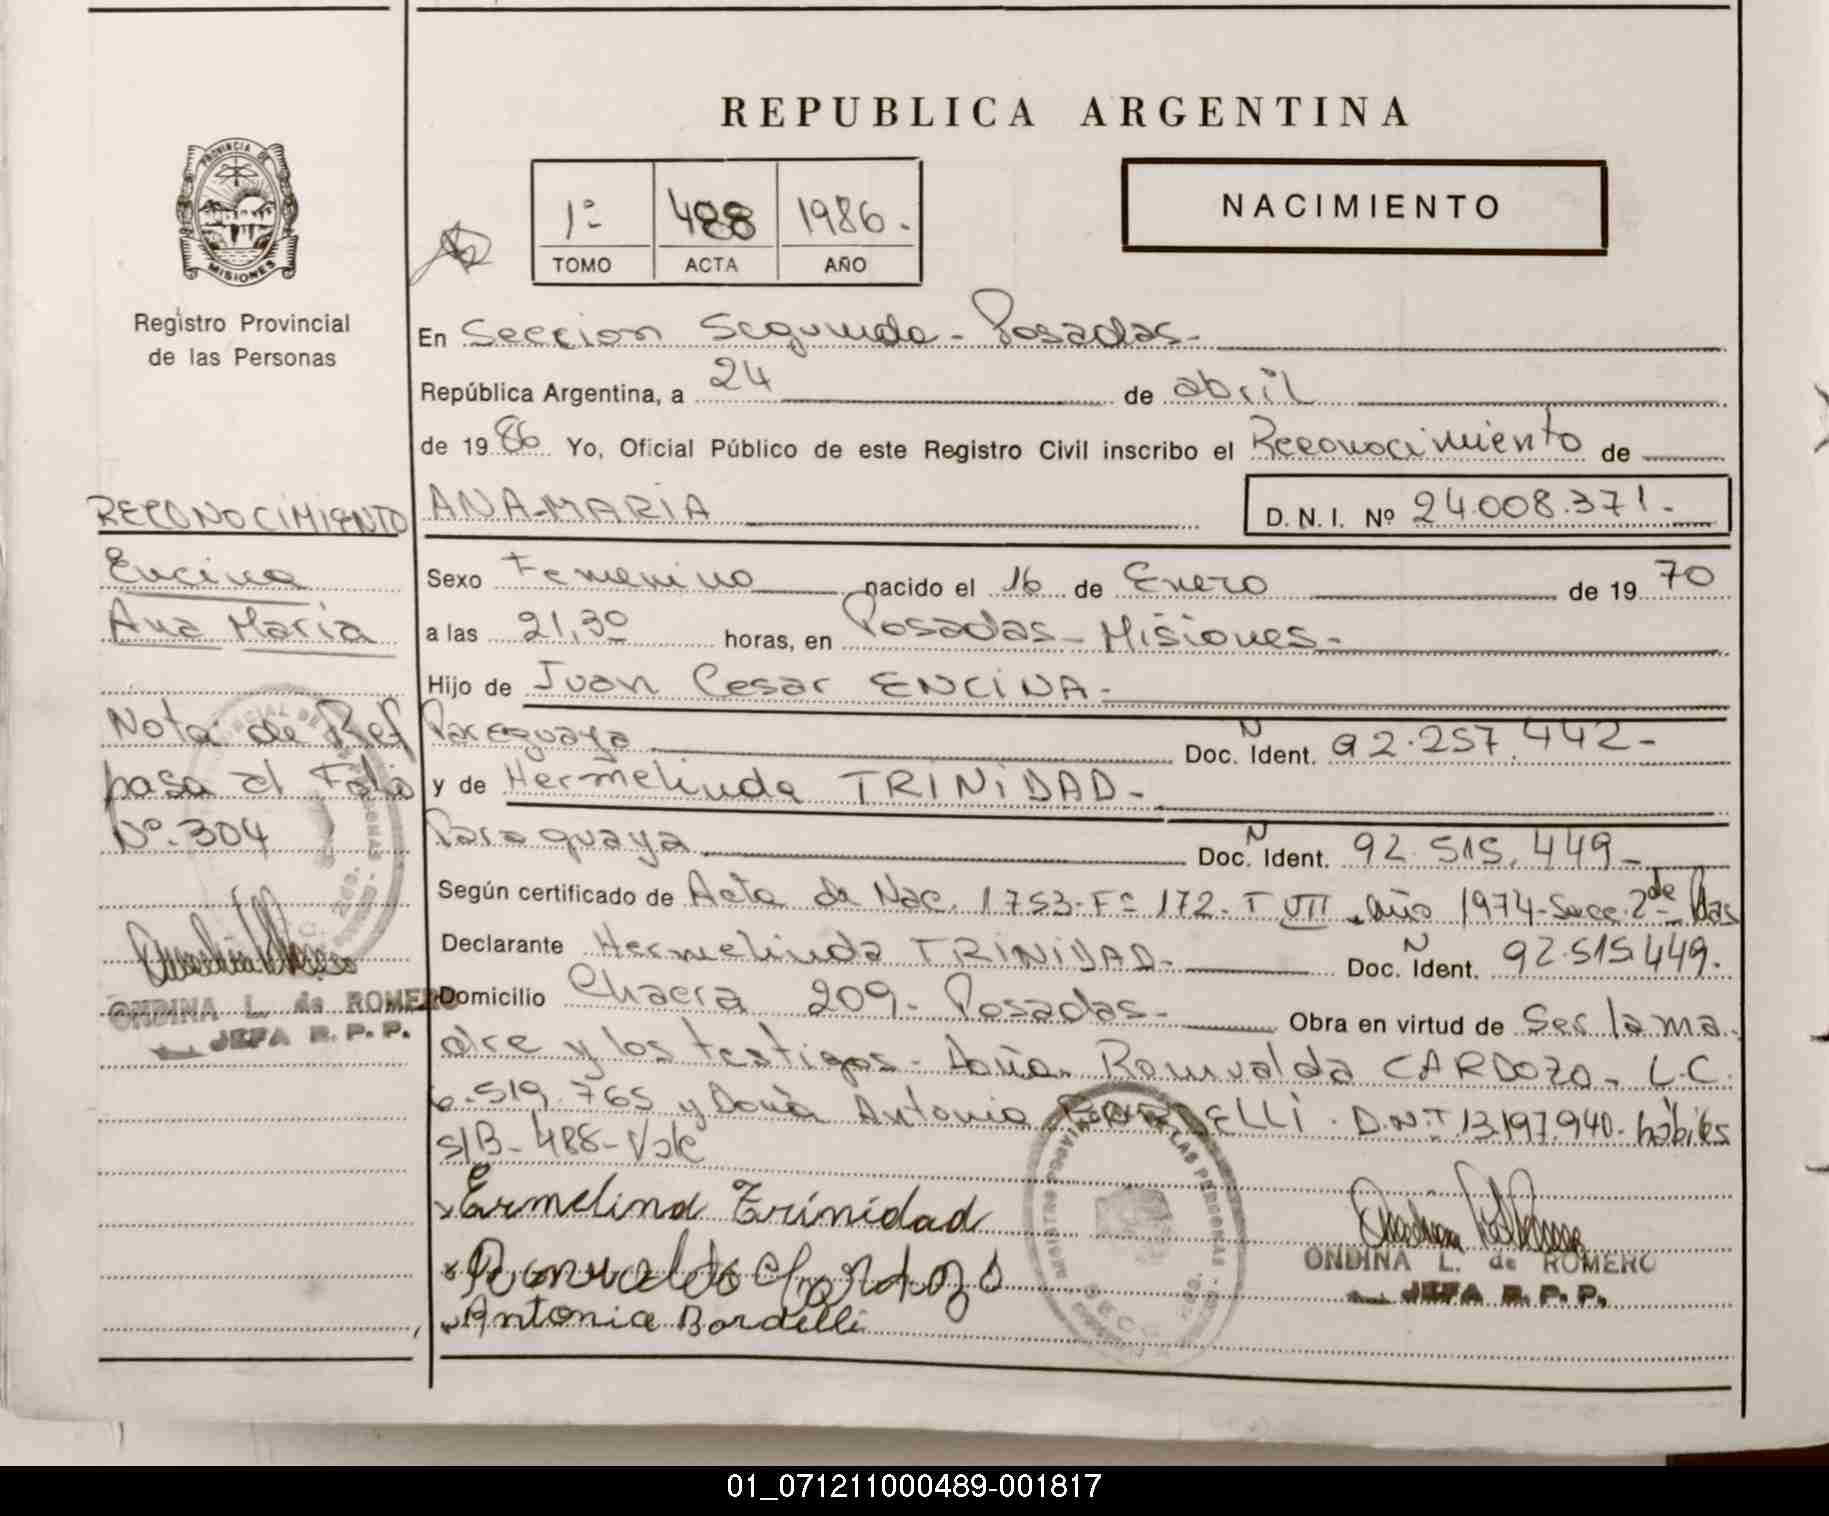 REPUBLICA ARGENTINA
PROVINCIA DE
MISIONES
Registro Provincial
de las Personas
1º 488 1986.
TOMO ACTA AÑO
NACIMIENTO
En Seccion Segunda - Posadas -
República Argentina, a 24 de abril
de 1986 Yo, Oficial Público de este Registro Civil inscribo el Reconocimiento de
ANA MARIA D.N.I. Nº 24.008.371.-
Sexo Femenino nacido el 16 de Enero de 19 70
a las 21,30 horas, en Posadas - Misiones -
Hijo de Juan Cesar ENCINA -
Paraguaya Doc. N Ident. 92.257.442 -
y de Hermelinda TRINiDAD -
Paraguaya Doc. N Ident. 92.515.449 -
Según certificado de Acta de Nac. 1753-Fº 172-T VII Año 1974-Secc. 2da Pdas
Declarante Hermelinda TRINiDAD - Doc. N Ident. 92.515.449.
Domicilio Chacra 209 - Posadas - Obra en virtud de Ser la ma
dre y los testigos - doña Romualda CARDOZO - L.C.
6.519.765 y Doña Antonia BORDELLi. D.N.I 13.197.940. hábiles
s/B - 488 - Vale
Ermelinda Trinidad
Romualda Cardozo
Antonia Bordelli
ONDINA L. de ROMERO
JEFA R. P. P.
RECONOCIMIENTO
Encina
Ana Maria
Nota de Ref
pasa al Folio
Nº. 304
ONDINA L. de ROMERO
JEFA R. P. P.
01_071211000489-001817